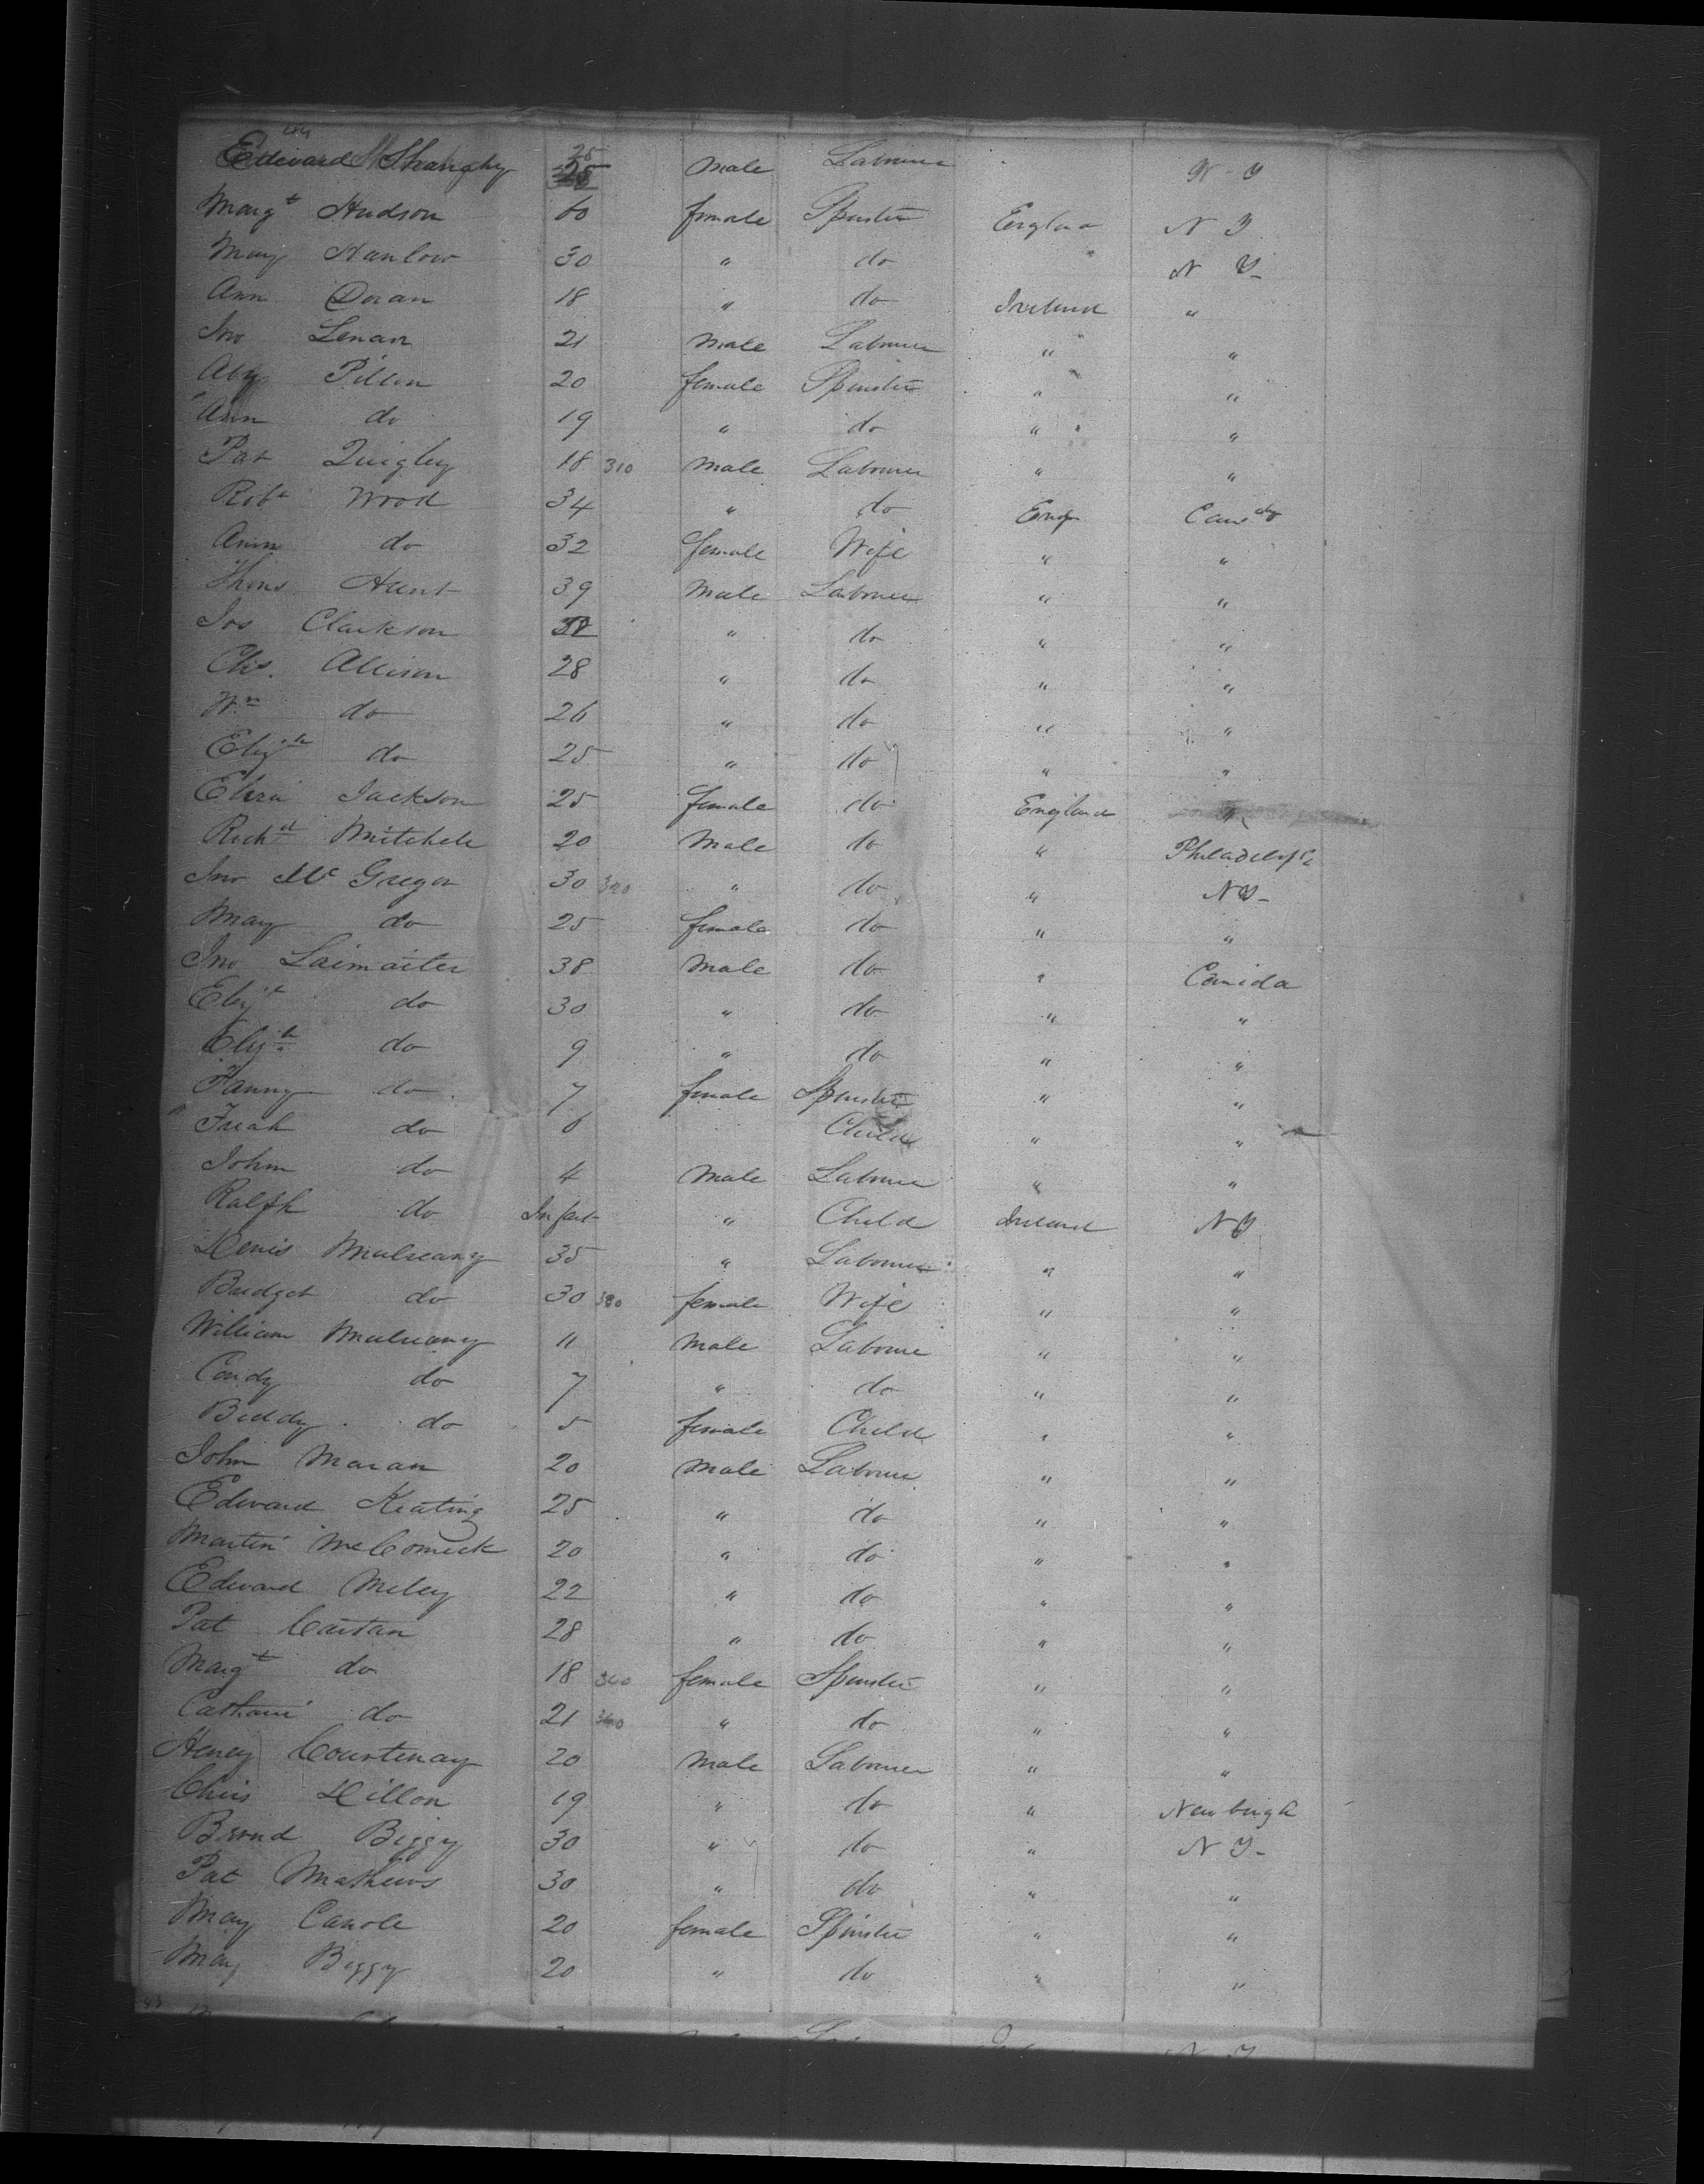 44
Edward Shanghy 25 25 male Labourer N-Y
Margt Hudson 60 female Spinster England N Y
Mary Hanlow 30 " do " N Y-
Ann Doran 18 " do Ireland "
Jno Lenan 21 male Labourer " "
Aby Pillen 20 female Spinster " "
Ann do 19 " do " "
Pat Quigley 18 310 male Labourer " "
Robt Wood 34 " do Eng Can do
Ann do 32 female Wife " "
Thos Hunt 39 male Labourer " "
Jos Clarkson " do " "
Chs. Allison 28 " do " "
Wm do 26 " do " "
Elizth do 25 " do " "
Eliza Jackson 25 female do England
Richd Mitchele 20 male do " Philadelpa
Jno McGregor 30 320 " do " NY-
Mary do 25 female do " "
Jno Laimaiter 38 male do " Canida
Elizt do 30 " do " "
Elizth do 9 " do " "
Fanny do 7 female Spinster " "
do 6 Child " "
John do 4 male Labourer " "
Ralph do Infant " Child Ireland NY
Denis Mulreany 35 " Labourer " "
Bridget do 30 330 female Wife " "
William Mulreany 11 male Labourer " "
Condy do 7 " do " "
Biddy do 5 female Child " "
John Maran 20 male Labourer " "
Edward Keating 25 " do " "
Martin McComick 20 " do " "
Edward Meley 22 " do " "
Pat Cartan 28 " do " "
Margt do 18 340 female Spinster " "
Catharine do 21 340 " do " "
Heney Courtenay 20 male Labourer " "
Chris Dillon 19 " do " Newburgh
Biggy 30 " do " N Y-
Pat Mathews 30 " do " "
Mary Carole 20 female Spinster " "
Mary Biggy 20 " do " "